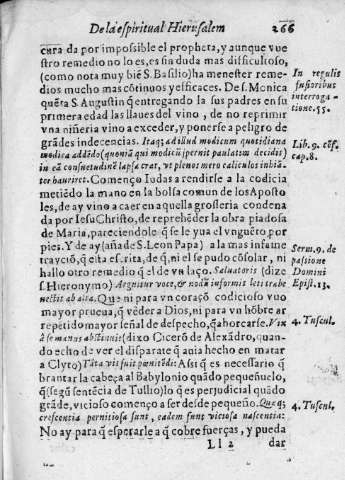 De la espiritual Hierusalem 266
cura da por impossible el propheta, y aunque vue
stro remedio no lo es, es sin duda mas difficultoso,
(como nota muy biẽ S. Basilio) ha menester reme-
dios mucho mas cõtinuos y efficaces. De s. Monica
quẽta S. Augustin q̃ entregando la sus padres en su
primera edad las llaues del vino, de no reprimir
vna niñeria vino a exceder, y ponerse a peligro de
grãdes indecencias. Itaq; ad illud modicum quotidiana
modica addẽdo (quoniã qui modicũ spernit paulatim decidit)
in eã consuetudinẽ lapsa erat, vt plenos mero caliculos inhiã-
ter hauriret. Començo Iudas a rendirse a la codicia
metiẽdo la mano en la bolsa comun de los Aposto
les, de ay vino a caer en aquella grosseria condena
da por Iesu Christo, de reprehẽder la obra piadosa
de Maria, pareciendole q̃ se le yua el vnguẽto por
pies. Y de ay (añade S. Leon Papa) a la mas infame
trayciõ, q̃ esta escrita, de q̃, ni el se pudo cõsolar, ni
hallo otro remedio q̃ el de vn laço. Saluatoris (dize
s. Hieronymo) Arguitur voce, & nodũ informis leti trabe
nectit ab alta. Que ni para vn coraçõ codicioso vuo
mayor prueua, q̃ vẽder a Dios, ni para vn hõbre ar
repẽtido mayor señal de despecho, q̃ ahorcarse. Vix
à se manus abstinuit (dixo Cicerõ de Alexãdro, quan-
do echo de ver el disparate q̃ auia hecho en matar
a Clyto) Tãta vis fuit pœnitẽdi: Assi q̃ es necessario q̃
brantar la cabeça al Babylonio quãdo pequeñuelo,
q̃ (segũ sentẽcia de Tullio) lo q̃ es perjudicial quãdo
grãde, vicioso començo a ser desde pequeño. Quæq;
crescentia perniciosa sunt, eadem sunt viciosa nascentia:
No ay para q̃ esperarle a q̃ cobre fuerças, y pueda
Ll 2 dar
In regulis
fusioribus
interroga-
tione. 55.
Lib. 9. cõf.
cap. 8.
Serm. 9. de
passione
Domini
Epist. 13.
4. Tuscul.
4. Tuscul.